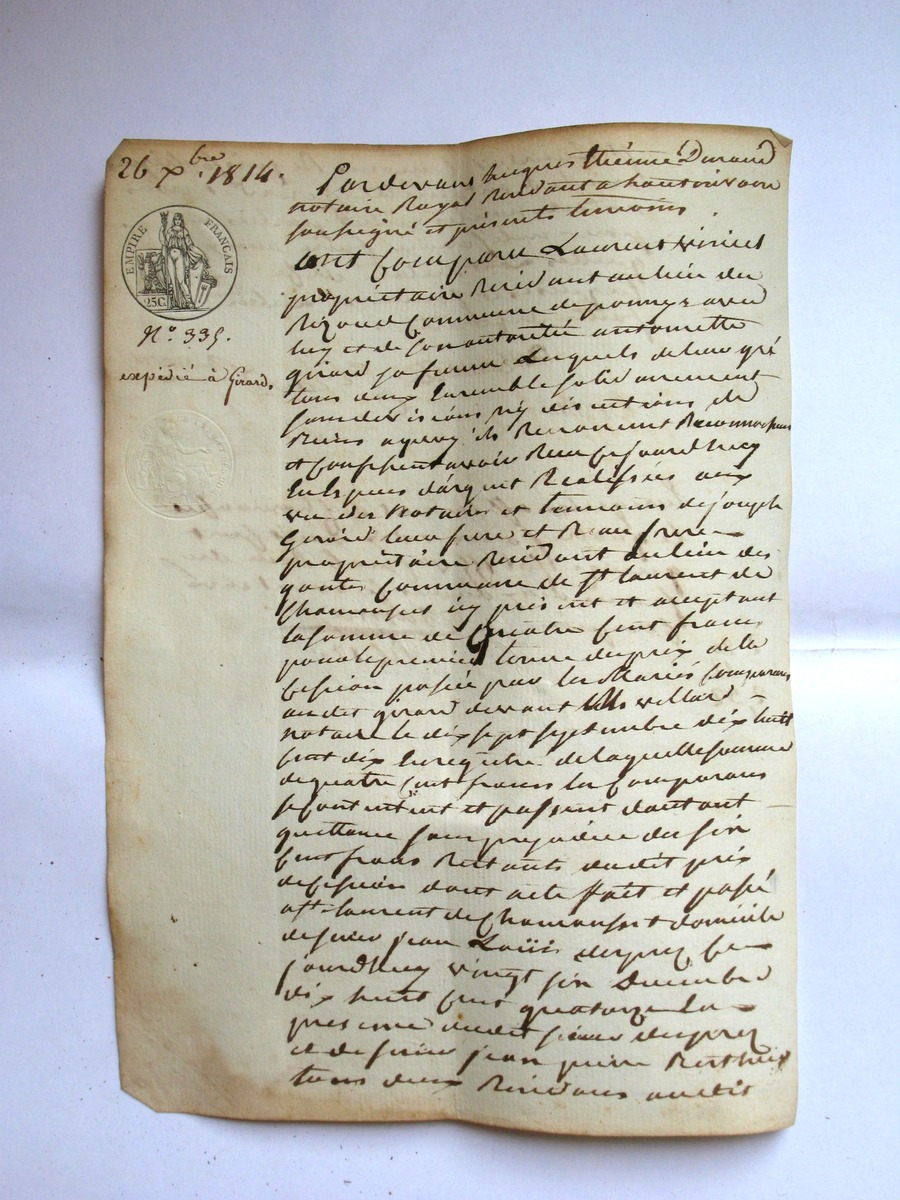 26 xbre 1814.
EMPIRE FRANÇAIS
25C.
N.o 335.
expédié à Girard.
Pardevant hugues Étienne Durand
notaire Royal Résidant a hautrivoire
soussigné et présents temoins
ont Comparu Laurent
propriétaire Résidant au lieu du
Commune de pomeys avec
luy et de son autorité antoinette
girard sa femme Lesquels de leur gré
tous deux Ensemble solidairement
sans division ny discutions de
Biens a quoy ils Renoncent Reconnaissent
et Confessent avoir Recu Cejourdhuy
En Espèces d'argent Réalisées aux
vu des Notaires et temoins de joseph
Girard leur frere et Beau frere
propriétaire Résidant au lieu des
Commune de St laurent de
Chamousset icy présent et acceptant
la somme de quatre Cent francs
pour le premier terme du prix de la
Cession passée par les Mariés Comparans
audit girard devant Me villard
notaire le dix sept septembre dix huit
Cent dix Enregistré de laquelle somme
de quatre Cent francs les Comparans
se Contentent et passent d'autant
quittance sans préjudice des six
Cent francs Restants dudit prix
de Cession dont acte fait et passé
a St laurent de Chamousset domicile
de sieur jean Louis duprez Ce
jourdhuy vingt six Decembre
dix huit Cent quatorze En
presence dudit sieur duprez
et de sieur jean pierre
tous deux Résidans audit